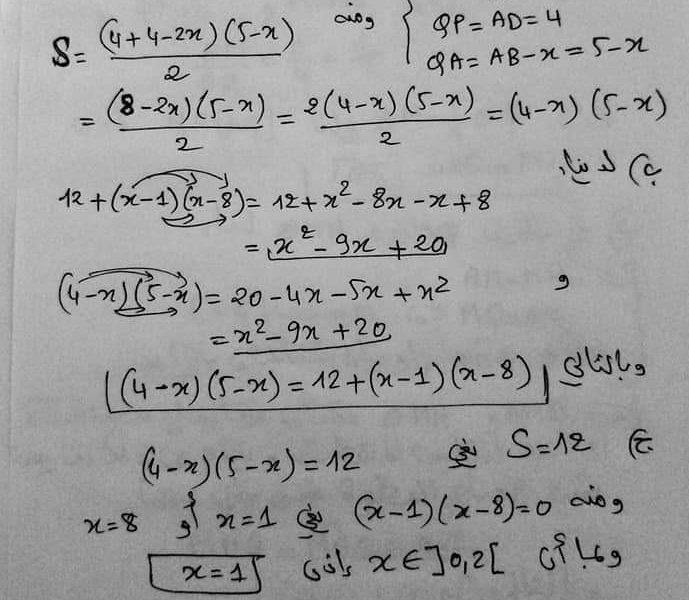 S = (4+4-2x)(5-x) / 2 ومنه { QP = AD = 4
QA = AB - x = 5-x
= (8-2x)(5-x) / 2 = 2(4-x)(5-x) / 2 = (4-x)(5-x)
ب) لدينا:
12+(x-1)(x-8) = 12+x²-8x-x+8
= x²-9x+20
و (4-x)(5-x) = 20-4x-5x+x²
= x²-9x+20
وبالتالي (4-x)(5-x) = 12+(x-1)(x-8)
ج) S=12 يعني (4-x)(5-x) = 12
ومنه (x-1)(x-8)=0 يعني x=1 أو x=8
وبما أن x∈]0,2[ فإن x=1